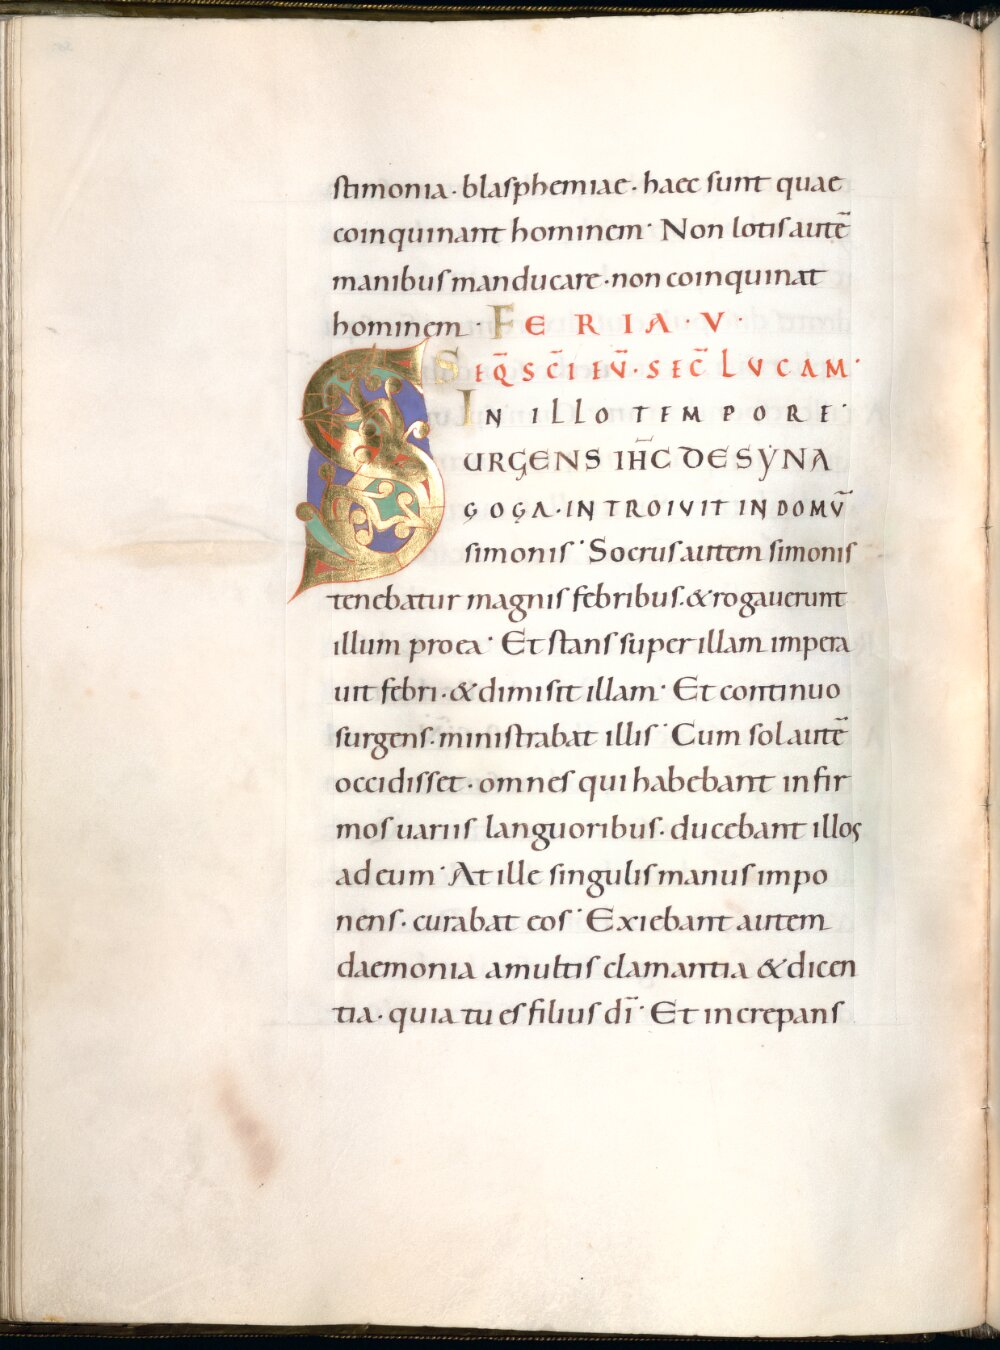 stimonia · blasphemiae · haec sunt quae
coinquinant hominem · Non lotis autē
manibus manducare · non coinquinat
hominem · FERIA · V ·
SEQ̄ SC̄I EŪ · SEC̄ LVCAM ·
IN ILLO TEMPORE ·
SURGENS IH̄C DE SYNA
GOGA · INTROIVIT IN DOMV̄
simonis · Socrus autem simonis
tenebatur magnis febribus · & rogauerunt
illum pro ea · Et stans super illam impera
uit febri · & dimisit illam · Et continuo
surgens · ministrabat illis · Cum sol autē
occidisset · omnes qui habebant infir
mos uariis languoribus · ducebant illos
ad eum · At ille singulis manus impo
nens · curabat eos · Exiebant autem
daemonia a multis clamantia & dicen
tia · quia tu es filius dī · Et increpans